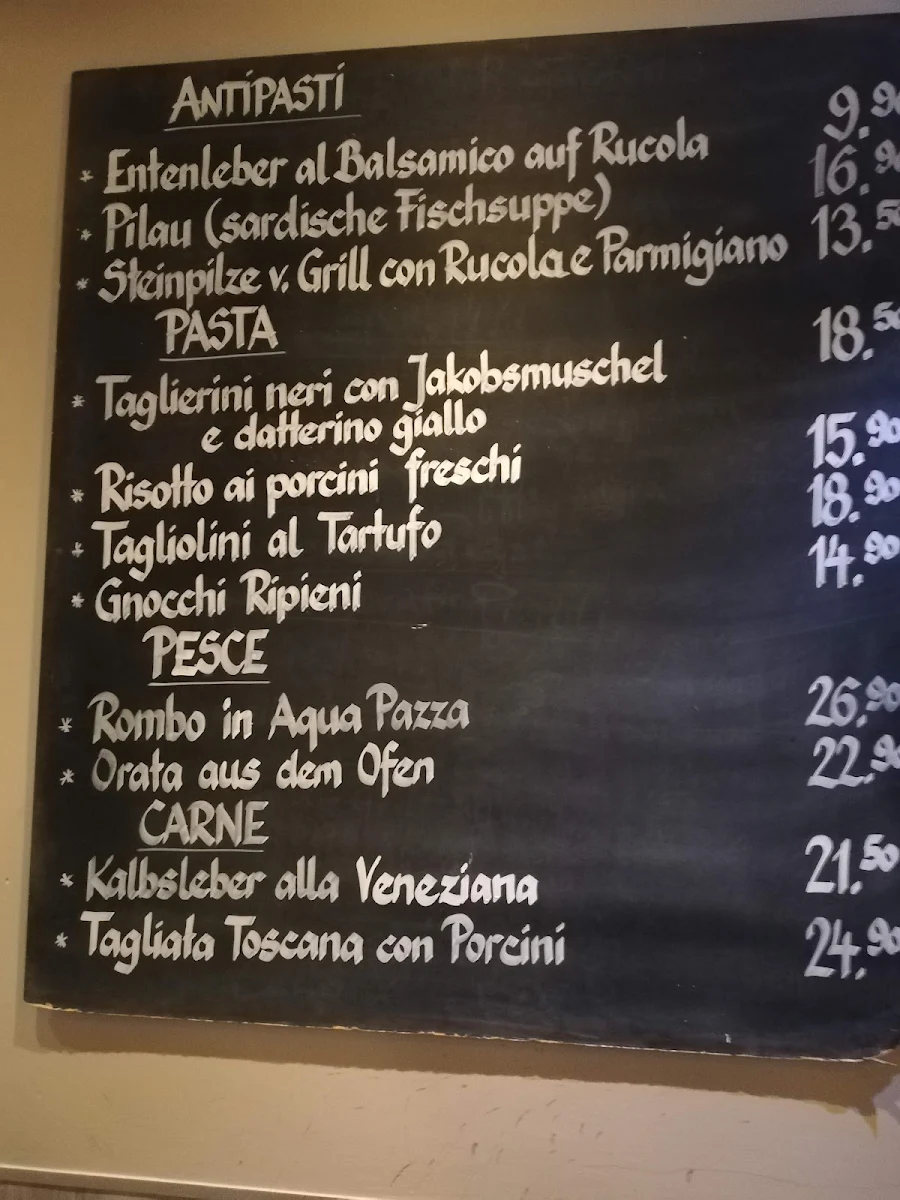 ANTIPASTI
* Entenleber al Balsamico auf Rucola 9.90
* Pilau (sardische Fischsuppe) 16.90
* Steinpilze v. Grill con Rucola e Parmigiano 13.50
PASTA
* Taglierini neri con Jakobsmuschel 18.50
e datterino giallo
* Risotto ai porcini freschi 15.90
* Tagliolini al Tartufo 18.90
* Gnocchi Ripieni 14.90
PESCE
* Rombo in Aqua Pazza 26.90
* Orata aus dem Ofen 22.90
CARNE
* Kalbsleber alla Veneziana 21.50
* Tagliata Toscana con Porcini 24.90